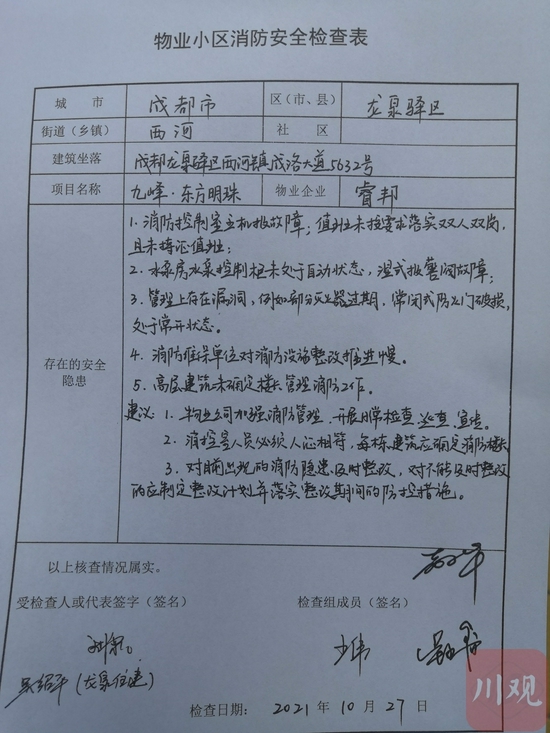 物业小区消防安全检查表
城 市 成都市 区(市、县) 龙泉驿区
街道(乡镇) 西河 社 区
建筑坐落 成都龙泉驿区西河镇成洛大道5632号
项目名称 九峰·东方明珠 物业企业 睿邦
存在的安全
隐患
1、消防控制室主机报故障；值班未按要求落实双人双岗
且未持证值班；
2、水泵房水泵控制柜未处于自动状态，湿式报警阀故障；
3、管理上存在漏洞，例如部分灭火器过期，常闭式防火门破损，
处于常开状态。
4、消防维保单位对消防设施整改推进慢。
5、高层建筑未确定楼长管理消防工作。
建议：1、物业公司加强消防管理，开展日常检查、巡查、宣传。
2、消控室人员必须人证相符，每栋建筑应确定消防楼长
3、对目前出现的消防隐患及时整改，对不能及时整改
的应制定整改计划并落实整改期间的防控措施。
以上核查情况属实。
受检查人或代表签字(签名) 检查组成员(签名)
(龙泉住建)
检查日期： 2021 年 10 月 27 日
川观